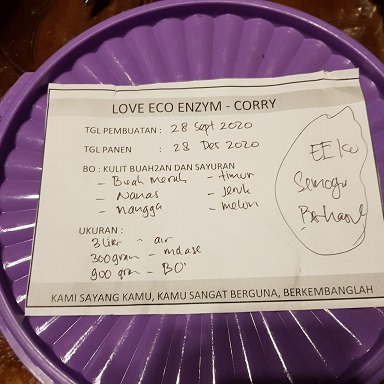 LOVE ECO ENZYM - CORRY
TGL PEMBUATAN : 28 Sept 2020
TGL PANEN : 28 Des 2020
BO : KULIT BUAH2AN DAN SAYURAN
- Buah merah - timun
- Nanas - jeruk
- mangga - melon
UKURAN :
3 liter - air
300 gram - mdase
900 gram - BO
EE ku
Semoga
Berhasil
KAMI SAYANG KAMU, KAMU SANGAT BERGUNA, BERKEMBANGLAH